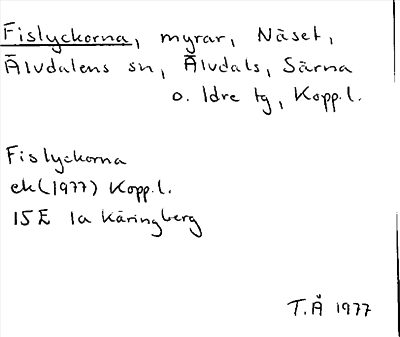 Fislyckorna, myrar, Näset,
Älvdalens sn, Älvdals, Särna
o. Idre tg, Kopp.l.
Fislyckorna
ek(1977) Kopp.l.
15E 1a Käringberg
T.Å 1977